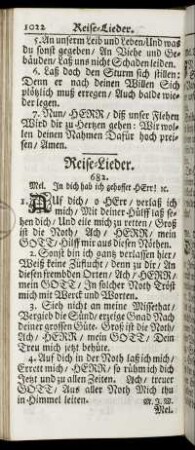 1022 Reise-Lieder.
5. An unserm Leib und Leben/Und was
du sonst gegeben/ An Viehe und Ge-
bäuden/ Laß uns nicht Schaden leiden.
6. Laß doch den Sturm sich stillen:
Denn er nach deinen Willen Sich
plötzlich muß erregen/ Auch balde wie-
der legen.
7. Nun/ HERR/ diß unser Flehen
Wird dir zu Hertzen gehen: Wir wol-
len deinen Nahmen Dafür hoch prei-
sen/ Amen.
Reise-Lieder.
682.
Mel. In dich hab ich gehoffet HErr! ꝛc.
1. Auf dich/ o HErr/ verlaß ich
mich/ Mit deiner Hülff laß se-
hen dich/ Und eile mich zu retten/ Groß
ist die Noth/ Ach/ HERR/ mein
GOTT/ Hilff mir aus diesen Nöthen.
2. Sonst bin ich gantz verlassen hier/
Weiß keine Zuflucht/ denn zu dir/ An
diesen frembden Orten/ Ach/ HERR/
mein GOTT/ In solcher Noth Tröst
mich mit Werck und Worten.
3. Sieh nicht an meine Missethat/
Vergieb die Sünd/erzeige Gnad Nach
deiner grossen Güte. Groß ist die Noth/
Ach/ HERR/ mein GOTT/ Dein
Treu mich jetzt behüte.
4. Auf dich in der Noth laß ich mich/
Errett mich/ HERR/ so rühm ich dich
Jetzt und zu allen Zeiten. Ach/ treuer
GOTT/ Aus aller Noth Mich thu
in Himmel leiten.
Mel.